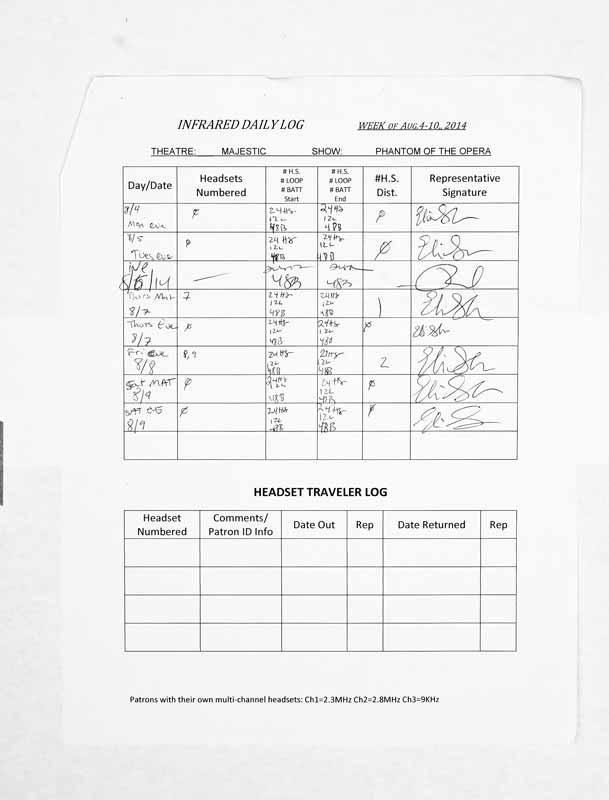 INFRARED DAILY LOG WEEK OF AUG.4-10, 2014
THEATRE: MAJESTIC SHOW: PHANTOM OF THE OPERA
Day/Date Headsets Numbered # H.S. # LOOP # BATT Start # H.S. # LOOP # BATT End #H.S. Dist. Representative Signature
8/4 Mon eve ø 24HS 12L 48B 24HS 12L 48B ø
8/5 Tues eve ø 24HS 12L 48B 24HS 12L 48B ø
8/6/14 — 48B 48B
Thurs Mat 8/7 7 24HS 12L 48B 24HS 12L 48B 1
Thurs Eve 8/7 ø 24HS 12L 48B 24HS 12L 48B ø
Fri Eve 8/8 8, 9 24HS 12L 48B 24HS 12L 48B 2
Sat MAT 8/9 ø 24HS 12L 48B 24HS 12L 48B ø
SAT EVE 8/9 ø 24HS 12L 48B 24HS 12L 48B ø
HEADSET TRAVELER LOG
Headset Numbered Comments/ Patron ID Info Date Out Rep Date Returned Rep
Patrons with their own multi-channel headsets: Ch1=2.3MHz Ch2=2.8MHz Ch3=9KHz